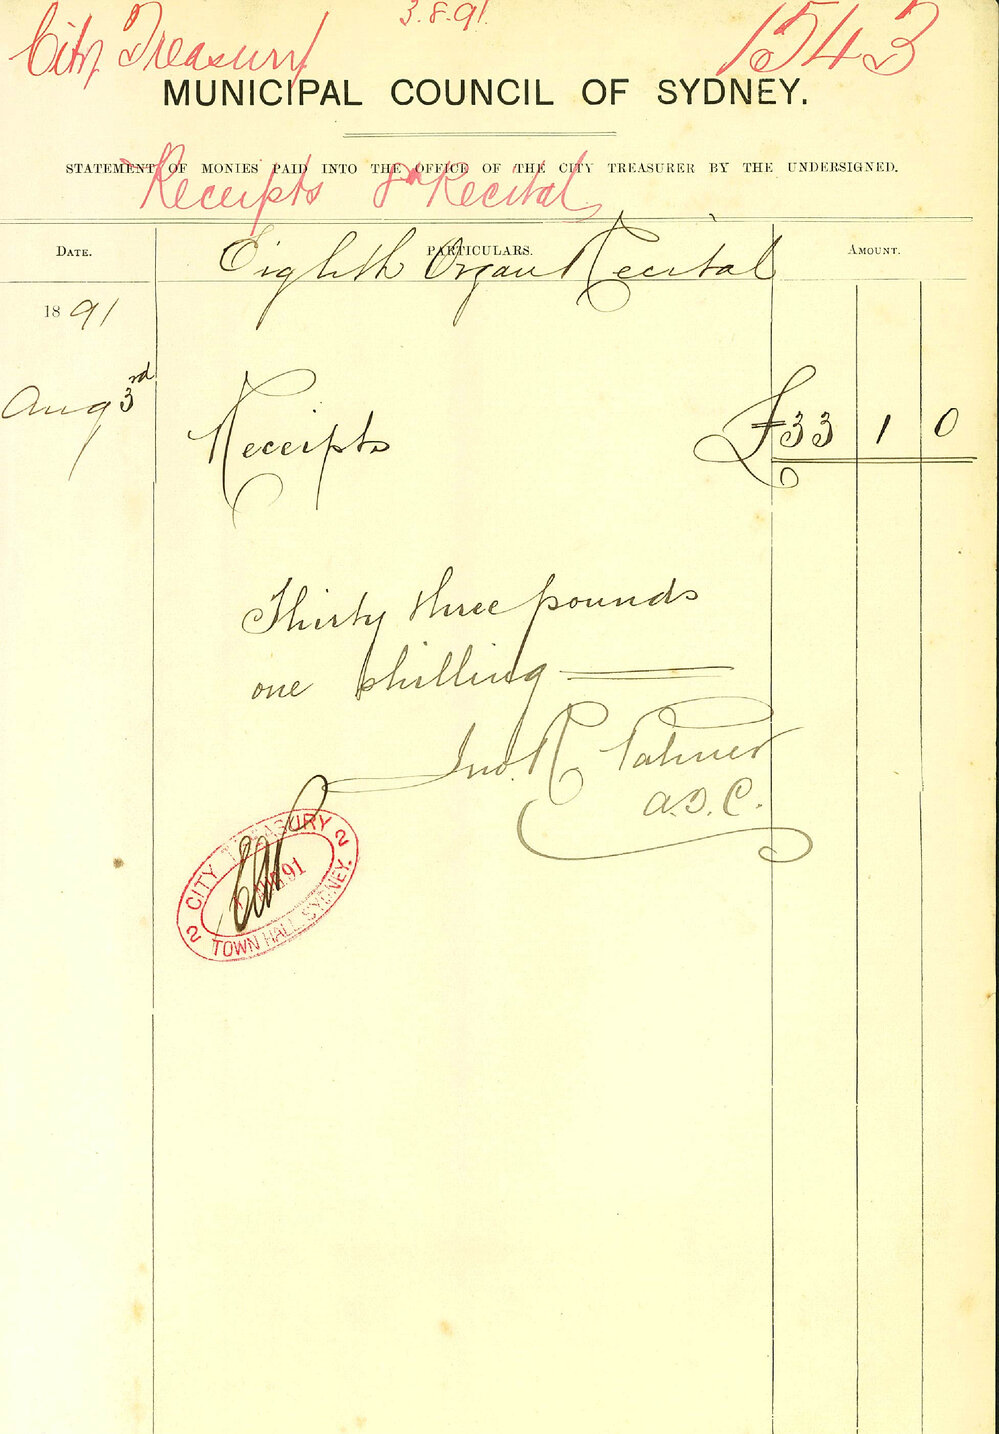 City Treasury 3.8.91. 1543
MUNICIPAL COUNCIL OF SYDNEY.
STATEMENT OF MONIES PAID INTO THE OFFICE OF THE CITY TREASURER BY THE UNDERSIGNED.
Receipts 8th Recital
DATE. PARTICULARS. AMOUNT.
Eighth Organ Recital
1891
Aug 3rd Receipts £33 1 0
Thirty three pounds
one shilling
Jno. R Palmer
A.T.C.
CITY TREASURY
91
TOWN HALL SYDNEY.
2 2